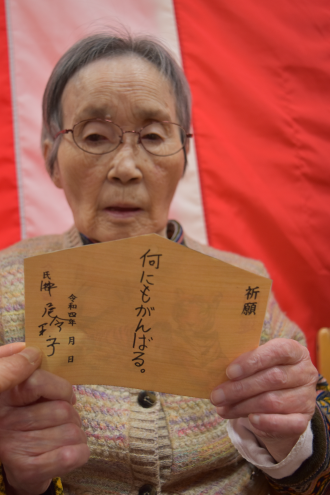 祈願
何にもがんばる。
令和四年 月 日
氏